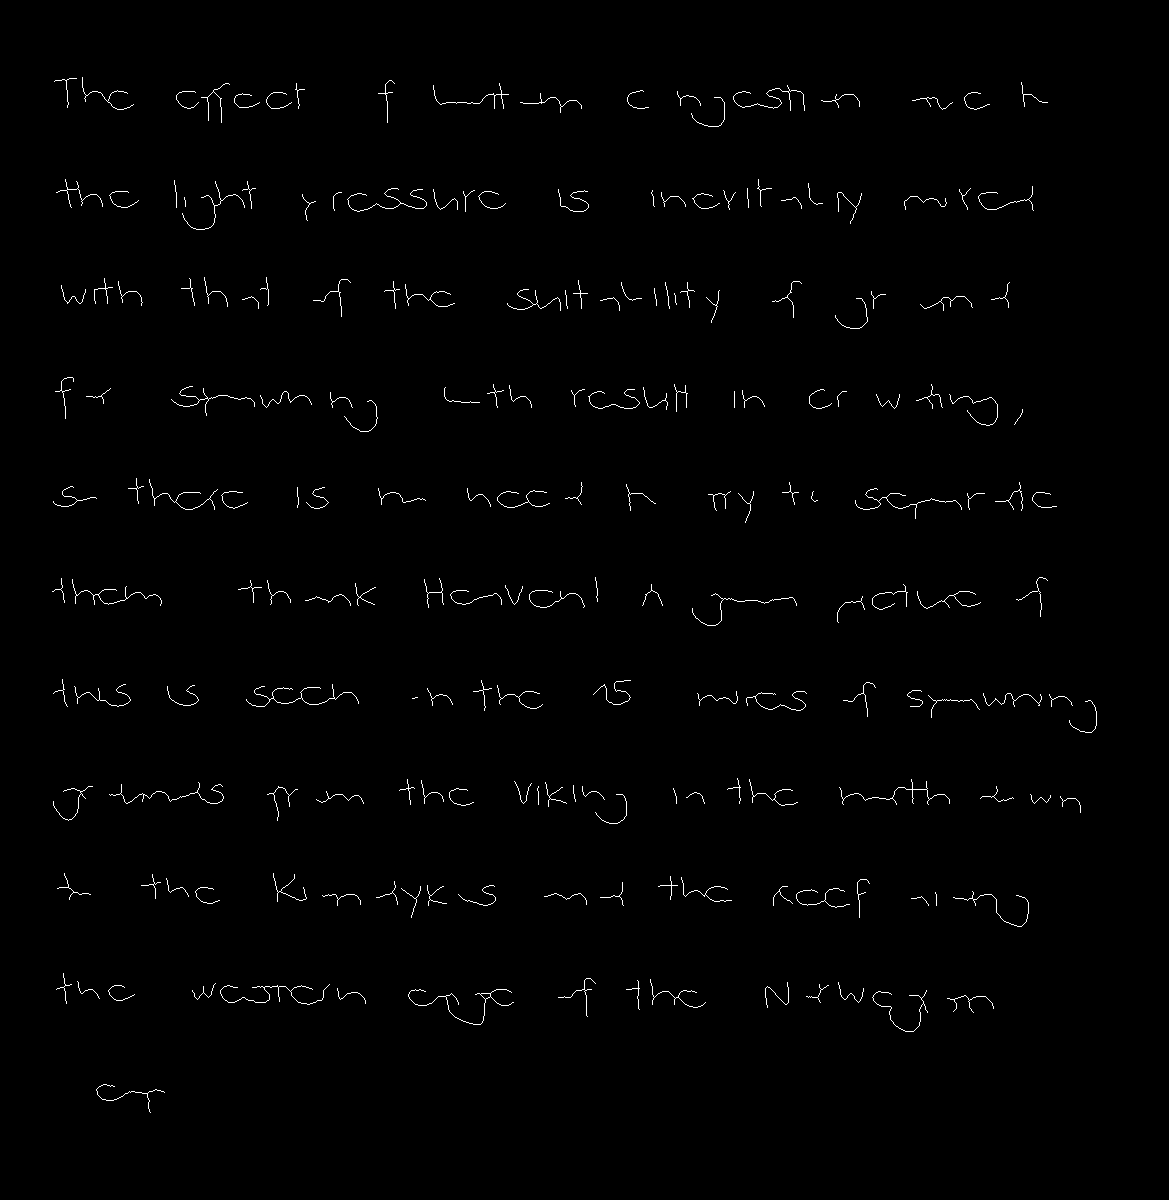 The effect of bottom congestion and
the light pressure is inevitably mixed
with that of the suitability of ground
for spawning both result in crowding,
so there is no need to try to separate
them thank Heaven! A good picture of
this is seen in the 15 miles of spawning
grounds from the Viking in the north down
to the Klondykes and the Reef along
the western edge of the Norwegian